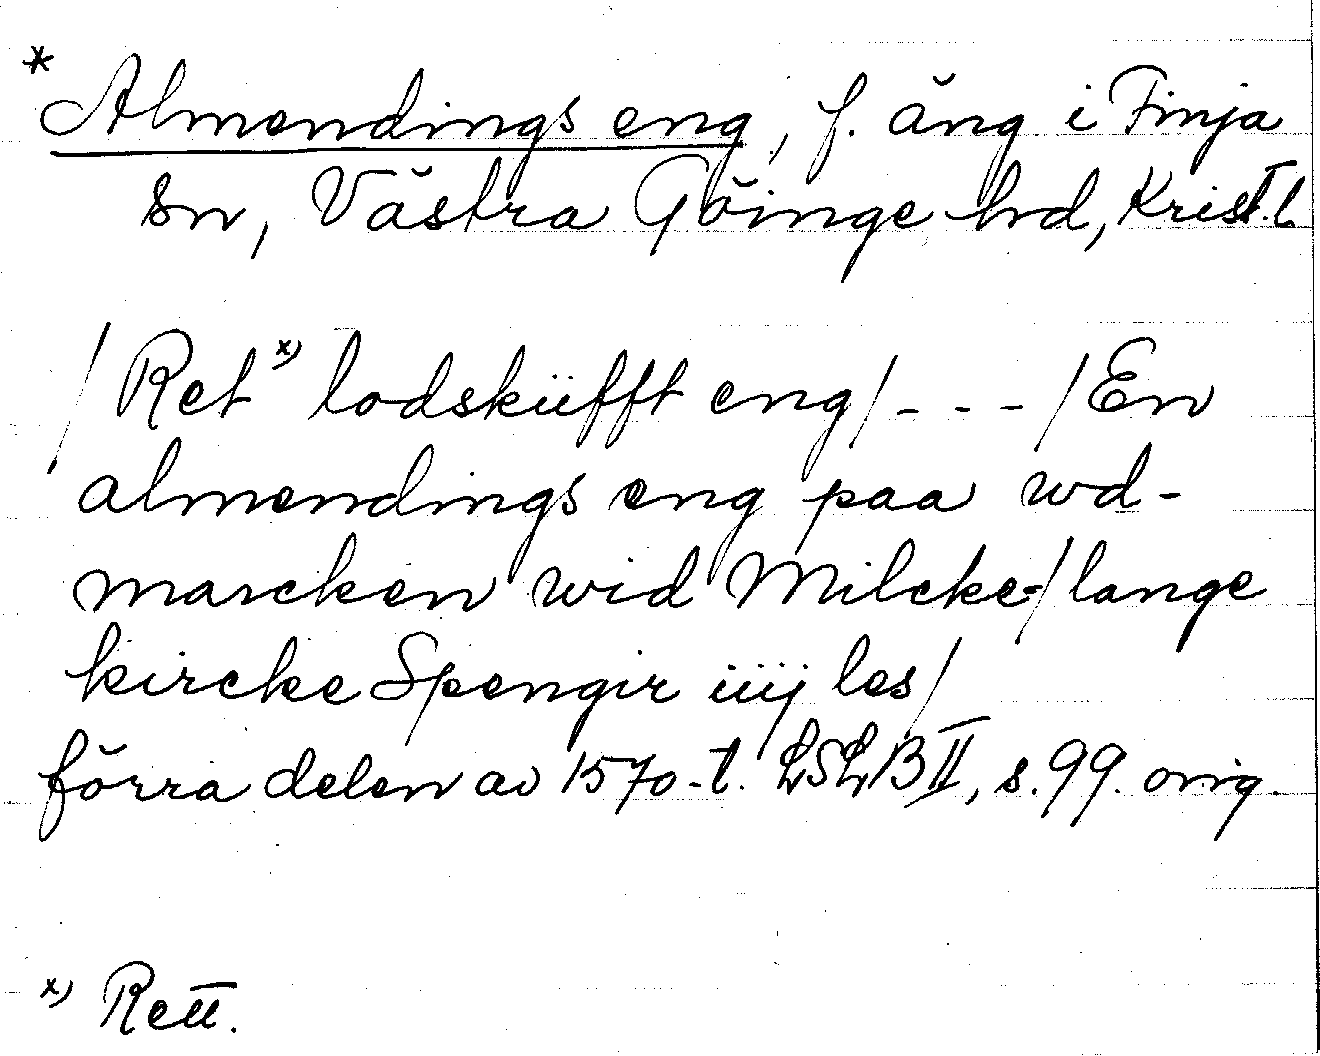 * Almendings eng, f. äng i Finja
sn, Västra Göinge hd, Krist.l.
/Ret x) lodsküfft eng/---/En
almendings eng paa wd-
marcken wid Milcke-/lange
kircke Spengir iiij les/
förra delen av 1570-t. LSLB II, s. 99. orig.
x) Rett.